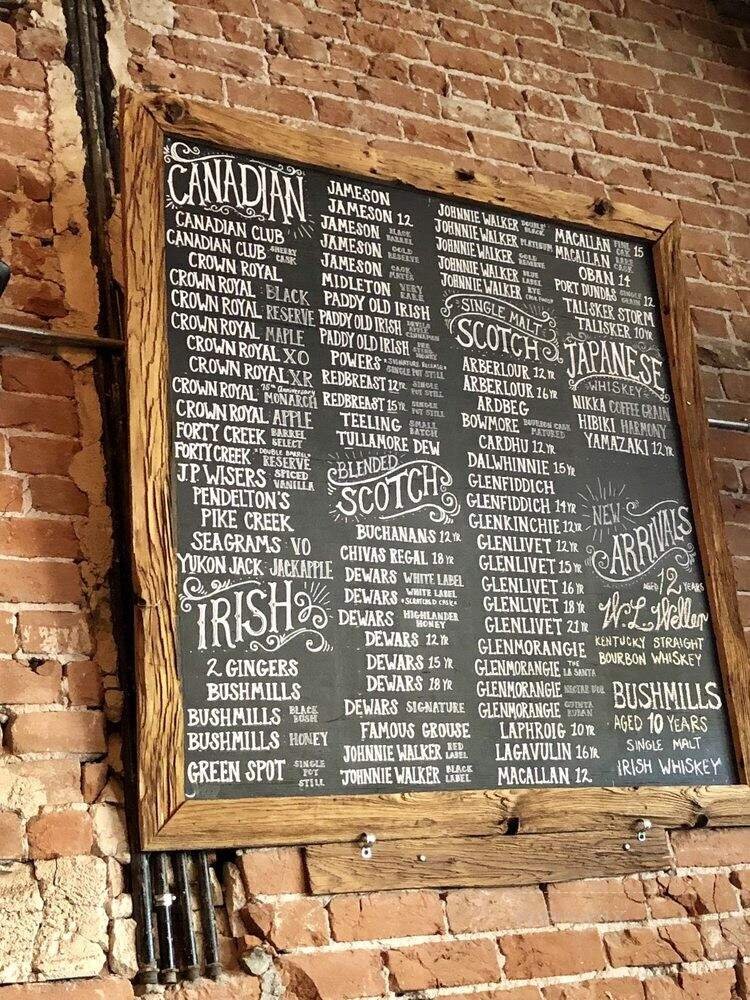 CANADIAN
CANADIAN CLUB
CANADIAN CLUB SHERRY CASK
CROWN ROYAL
CROWN ROYAL BLACK
CROWN ROYAL RESERVE
CROWN ROYAL MAPLE
CROWN ROYAL XO
CROWN ROYAL XR
CROWN ROYAL 75th Anniversary MONARCH
CROWN ROYAL APPLE
FORTY CREEK BARREL SELECT
FORTY CREEK DOUBLE BARREL RESERVE
J.P. WISERS SPICED VANILLA
PENDELTON'S
PIKE CREEK
SEAGRAMS VO
YUKON JACK JACKAPPLE
IRISH
2 GINGERS
BUSHMILLS
BUSHMILLS BLACK BUSH
BUSHMILLS HONEY
GREEN SPOT SINGLE POT STILL
JAMESON
JAMESON 12
JAMESON BLACK BARREL
JAMESON GOLD RESERVE
JAMESON CASK MATES
MIDLETON VERY RARE
PADDY OLD IRISH
PADDY OLD IRISH DEVILS APPLE CINNAMON
PADDY OLD IRISH BEE STING HONEY
POWERS SIGNATURE RELEASE SINGLE POT STILL
REDBREAST 12 YR SINGLE POT STILL
REDBREAST 15 YR SINGLE POT STILL
TEELING SMALL BATCH
TULLAMORE DEW
BLENDED
SCOTCH
BUCHANANS 12 YR
CHIVAS REGAL 18 YR
DEWARS WHITE LABEL
DEWARS WHITE LABEL "SCRATCHED CASK"
DEWARS HIGHLANDER HONEY
DEWARS 12 YR
DEWARS 15 YR
DEWARS 18 YR
DEWARS SIGNATURE
FAMOUS GROUSE
JOHNNIE WALKER RED LABEL
JOHNNIE WALKER BLACK LABEL
JOHNNIE WALKER DOUBLE BLACK
JOHNNIE WALKER PLATINUM
JOHNNIE WALKER GOLD RESERVE
JOHNNIE WALKER BLUE LABEL
JOHNNIE WALKER RYE
SINGLE MALT
SCOTCH
ARBERLOUR 12 YR
ARBERLOUR 16 YR
ARDBEG
BOWMORE BOURBON CASK MATURED
CARDHU 12 YR
DALWHINNIE 15 YR
GLENFIDDICH
GLENFIDDICH 14 YR
GLENKINCHIE 12 YR
GLENLIVET 12 YR
GLENLIVET 15 YR
GLENLIVET 16 YR
GLENLIVET 18 YR
GLENLIVET 21 YR
GLENMORANGIE
GLENMORANGIE THE LA SANTA
GLENMORANGIE NECTAR D'OR
GLENMORANGIE QUINTA RUBAN
LAPHROIG 10 YR
LAGAVULIN 16 YR
MACALLAN 12
MACALLAN FINE OAK 15
MACALLAN RARE CASK
OBAN 14
PORT DUNDAS SINGLE GRAIN 12
TALISKER STORM
TALISKER 10 YR
JAPANESE
WHISKEY
NIKKA COFFEE GRAIN
HIBIKI HARMONY
YAMAZAKI 12 YR
NEW
ARRIVALS
AGED 12 YEARS
W.L. Weller
KENTUCKY STRAIGHT
BOURBON WHISKEY
BUSHMILLS
AGED 10 YEARS
SINGLE MALT
IRISH WHISKEY